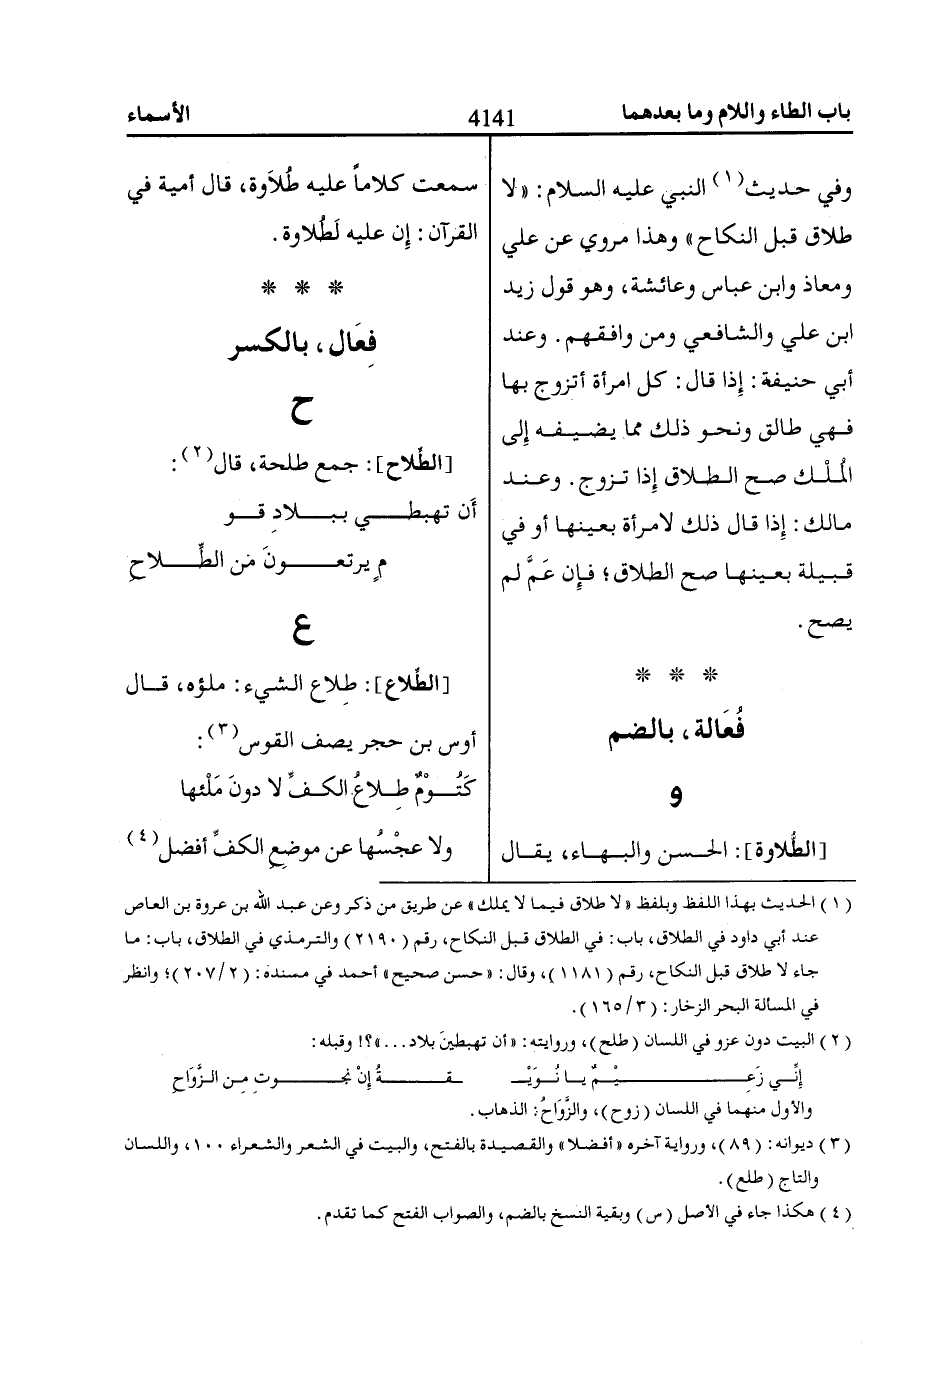 باب الطاء واللام وما بعدهما
4141
الأسماء
وفي حديث(١) النبي عليه السلام: «لا
طلاق قبل النكاح» وهذا مروي عن علي
ومعاذ وابن عباس وعائشة، وهو قول زيد
ابن علي والشافعي ومن وافقهم. وعند
أبي حنيفة: إذا قال: كل امرأة أتزوج بها
فهي طالق ونحو ذلك مما يضيفه إلى
المُلْك صح الطلاق إذا تزوج. وعند
مالك: إذا قال ذلك لامرأة بعينها أو في
قبيلة بعينها صح الطلاق؛ فإن عَمَّ لم
يصح.
* * *
فُعَالة، بالضم
و
[الطُّلاوة]: الحسن والبهاء، يقال
سمعت كلاماً عليه طُلاَوة، قال أمية في
القرآن: إن عليه لَطُلاوة.
* * *
فِعَال، بالكسر
ح
[الطِّلاح]: جمع طلحة، قال(٢):
أَن تهبطي ببلادِ قو
مٍ يرتعونَ مَن الطِّلاحِ
ع
[الطِّلاع]: طِلاع الشيء: ملؤه، قال
أوس بن حجر يصف القوس(٣):
كَتُوْمٌ طِلاعُ الكفِّ لا دونَ مَلْئها
ولا عجْسُها عن موضعِ الكفِّ أفضل(٤)
(١) الحديث بهذا اللفظ وبلفظ «لا طلاق فيما لا يملك» عن طريق من ذكر وعن عبد الله بن عروة بن العاص
عند أبي داود في الطلاق، باب: في الطلاق قبل النكاح، رقم (٢١٩٠) والترمذي في الطلاق، باب: ما
جاء لا طلاق قبل النكاح، رقم (١١٨١)، وقال: «حسن صحيح» أحمد في مسنده: (٢/٢٠٧)؛ وانظر
في المسالة البحر الزخار: (٣/١٦٥).
(٢) البيت دون عزو في اللسان (طلح)، وروايته: «أن تهبطينَ بلاد...»؟! وقبله:
إنِّي زَعِيْمٌ يا نُوَيْـقةُ إنْ نجوتِ مِن الزَّوَاحِ
والأول منهما في اللسان (زوح)، والزَّوَاحُ: الذهاب.
(٣) ديوانه: (٨٩)، ورواية آخره «أفضلا» والقصيدة بالفتح، والبيت في الشعر والشعراء ١٠٠، واللسان
والتاج (طلع).
(٤) هكذا جاء في الأصل (س) وبقية النسخ بالضم، والصواب الفتح كما تقدم.